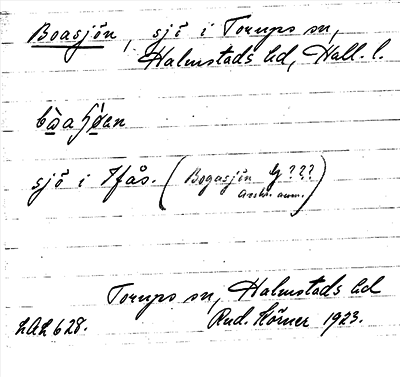 Boasjön, sjö i Torups sn,
Halmstads hd, Hall. l.
bòaʃǿen
sjö i Ifås. (Bogasjön G???
Anders. anm.)
Torups sn, Halmstads hd
LAL 628. Rud. Hörner 1923.